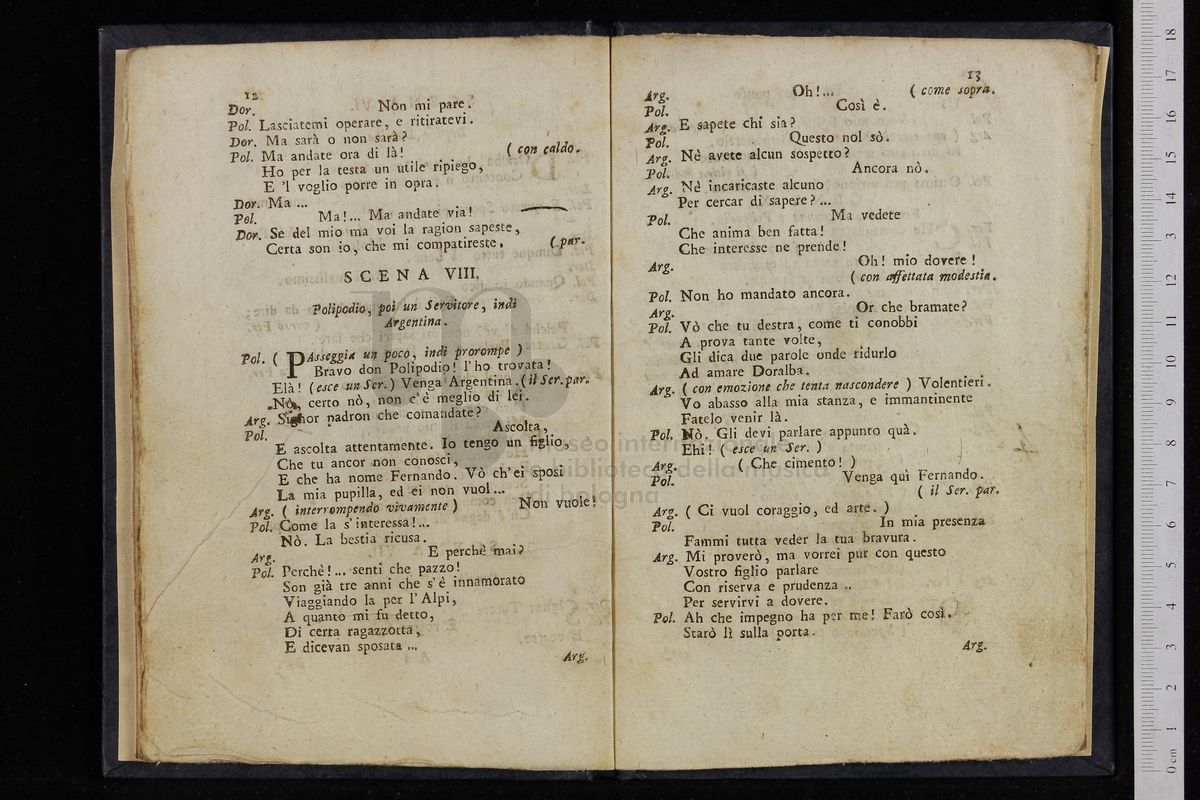 12
Dor. Non mi pare.
Pol. Lasciatemi operare, e ritiratevi.
Dor. Ma sarà o non sarà?
Pol. Ma andate ora di là! ( con caldo.
Ho per la testa un utile ripiego,
E 'l voglio porre in opra.
Dor. Ma ...
Pol. Ma!... Ma andate via!
Dor. Se del mio ma voi la ragion sapeste,
Certa son io, che mi compatireste. ( par.
SCENA VIII.
Polipodio, poi un Servitore, indi
Argentina.
Pol. ( PAsseggia un poco, indi prorompe )
Bravo don Polipodio! l'ho trovata!
Elà! ( esce un Ser. ) Venga Argentina. ( il Ser. par.
Nò, certo nò, non c'è meglio di lei.
Arg. Signor padron che comandate?
Pol. Ascolta,
E ascolta attentamente. Io tengo un figlio,
Che tu ancor non conosci,
E che ha nome Fernando. Vò ch'ei sposi
La mia pupilla, ed ei non vuol...
Arg. ( interrompendo vivamente ) Non vuole!
Pol. Come la s'interessa!...
Nò. La bestia ricusa.
Arg. E perchè mai?
Pol. Perchè!... senti che pazzo!
Son già tre anni che s'è innamorato
Viaggiando la per l'Alpi,
A quanto mi fu detto,
Di certa ragazzotta,
E dicevan sposata ...
Arg.
13
Arg. Oh!... ( come sopra.
Pol. Così è.
Arg. E sapete chi sia?
Pol. Questo nol sò.
Arg. Nè avete alcun sospetto?
Pol. Ancora nò.
Arg. Nè incaricaste alcuno
Per cercar di sapere? ...
Pol. Ma vedete
Che anima ben fatta!
Che interesse ne prende!
Arg. Oh! mio dovere!
( con affettata modestia.
Pol. Non ho mandato ancora.
Arg. Or che bramate?
Pol. Vò che tu destra, come ti conobbi
A prova tante volte,
Gli dica due parole onde ridurlo
Ad amare Doralba.
Arg. ( con emozione che tenta nascondere ) Volentieri.
Vo abasso alla mia stanza, e immantinente
Fatelo venir là.
Pol. Nò. Gli devi parlare appunto quà.
Ehi! ( esce un Ser. )
Arg. ( Che cimento! )
Pol. Venga quì Fernando.
( il Ser. par.
Arg. ( Ci vuol coraggio, ed arte. )
Pol. In mia presenza
Fammi tutta veder la tua bravura.
Arg. Mi proverò, ma vorrei pur con questo
Vostro figlio parlare
Con riserva e prudenza ..
Per servirvi a dovere.
Pol. Ah che impegno ha per me! Farò così.
Starò lì sulla porta.
Arg.
Museo internazionale
e biblioteca della musica
di bologna
0 cm 1 2 3 4 5 6 7 8 9 10 11 12 13 14 15 16 17 18